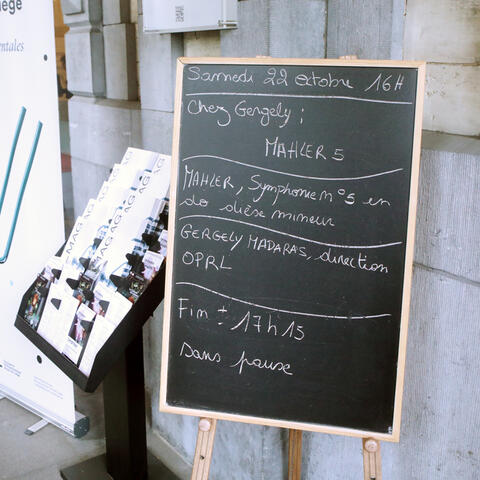 iège
entales
Samedi 22 octobre 16H
Chez Gergely :
MAHLER 5
MAHLER, Symphonie n°5 en
do dièse mineur
GERGELY MADARAS, direction
OPRL
Fin ± 17h15
Sans pause
MAG
MAG
MAG